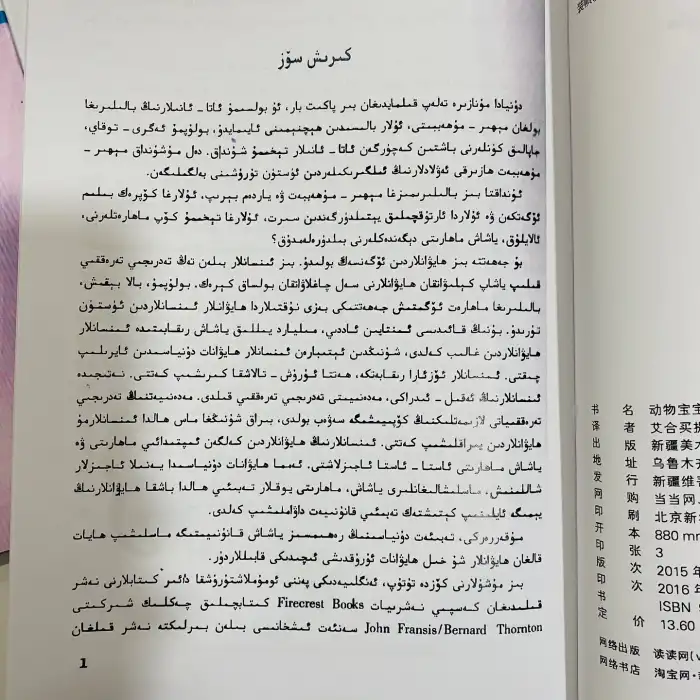 كىرىش سۆز
دۇنيادا مۇنازىرە تەلەپ قىلمايدىغان بىر پاكىت بار، ئۇ بولسىمۇ ئاتا - ئانىلارنىڭ بالىلىرىغا
بولغان مېھىر - مۇھەببىتى، ئۇلار بالىسىدىن ھېچنېمىنى ئايىمايدۇ، بولۇپمۇ ئەگرى - توقاي،
جاپالىق كۈنلەرنى باشتىن كەچۈرگەن ئاتا - ئانىلار تېخىمۇ شۇنداق. دەل مۇشۇنداق مېھىر -
مۇھەببەت ھازىرقى ئەۋلادلارنىڭ ئىلگىرىكىلەردىن ئۈستۈن تۇرۇشىنى بەلگىلىگەن.
ئۇنداقتا بىز بالىلىرىمىزغا مېھىر - مۇھەببەت ۋە ياردەم بېرىپ، ئۇلارغا كۆپرەك بىلىم
ئۆگەتكەن ۋە ئۇلاردا ئارتۇقچىلىق يېتىلدۈرگەندىن سىرت، ئۇلارغا تېخىمۇ كۆپ ماھارەتلەرنى،
ئالايلۇق، ياشاش ماھارىتى دېگەندەكلەرنى بىلدۈرەلەمدۇق؟
بۇ جەھەتتە بىز ھايۋانلاردىن ئۆگەنسەك بولىدۇ. بىز ئىنسانلار بىلەن تەڭ تەدرىجىي تەرەققىي
قىلىپ ياشاپ كېلىۋاتقان ھايۋانلارنى سەل چاغلاۋاتقان بولساق كېرەك. بولۇپمۇ، بالا بېقىش،
بالىلىرىغا ماھارەت ئۆگىتىش جەھەتتىكى بەزى نۇقتىلاردا ھايۋانلار ئىنسانلاردىن ئۈستۈن
تۇرىدۇ. بۇنىڭ قائىدىسى ئىنتايىن ئاددىي، مىليارد يىللىق ياشاش رىقابىتىدە ئىنسانلار
ھايۋانلاردىن غالىب كەلدى، شۇنىڭدىن ئېتىبارەن ئىنسانلار ھايۋانات دۇنياسىدىن ئايرىلىپ
چىقتى. ئىنسانلار ئۆزئارا رىقابەتكە، ھەتتا ئۇرۇش - تالاشقا كىرىشىپ كەتتى. نەتىجىدە
ئىنسانلارنىڭ ئەقىل - ئىدراكى، مەدەنىيىتى تەدرىجىي تەرەققىي قىلدى. مەدەنىيەتنىڭ تەدرىجىي
تەرەققىياتى لازىمەتلىكنىڭ كۆپىيىشىگە سەۋەب بولدى، بىراق شۇنىڭغا ماس ھالدا ئىنسانلارمۇ
ھايۋانلاردىن يىراقلىشىپ كەتتى. ئىنسانلارنىڭ ھايۋانلاردىن كەلگەن ئىپتىدائىي ماھارىتى ۋە
ياشاش ماھارىتى ئاستا - ئاستا ئاجىزلاشتى. ئەمما ھايۋانات دۇنياسىدا يەنىلا ئاجىزلار
شاللىنىش، ماسلىشالىغانلىرى ياشاش، ماھارىتى يوقلار تەبىئىي ھالدا باشقا ھايۋانلارنىڭ
يېمىگە ئايلىنىپ كېتىشتەك تەبىئىي قانۇنىيەت داۋاملىشىپ كەلدى.
مۇقەررەركى، تەبىئەت دۇنياسىنىڭ رەھىمسىز ياشاش قانۇنىيىتىگە ماسلىشىپ ھايات
قالغان ھايۋانلار شۇ خىل ھايۋانات ئۇرۇقدىشى ئىچىدىكى قابىللاردۇر.
بىز مۇشۇلارنى كۆزدە تۇتۇپ، ئەنگلىيەدىكى پەننى ئومۇملاشتۇرۇشقا دائىر كىتابلارنى نەشر
قىلىدىغان كەسپىي نەشرىيات Firecrest Books كىتابچىلىق چەكلىك شىركىتى
John Fransis/Bernard Thornton سەنئەت ئىشخانىسى بىلەن بىرلىكتە نەشر قىلغان
1
书 名 动物宝宝
译 者 艾合买提
出 版 新疆美术
地 址 乌鲁木齐
发 行 新疆维吾
网 购 当当网、
印 刷 北京新华
开 本 880 mm
印 张 3
版 次 2015 年
印 次 2016 年
书 ISBN
定 价 13.60
网络出版 读读网(w
网络书店 淘宝网·